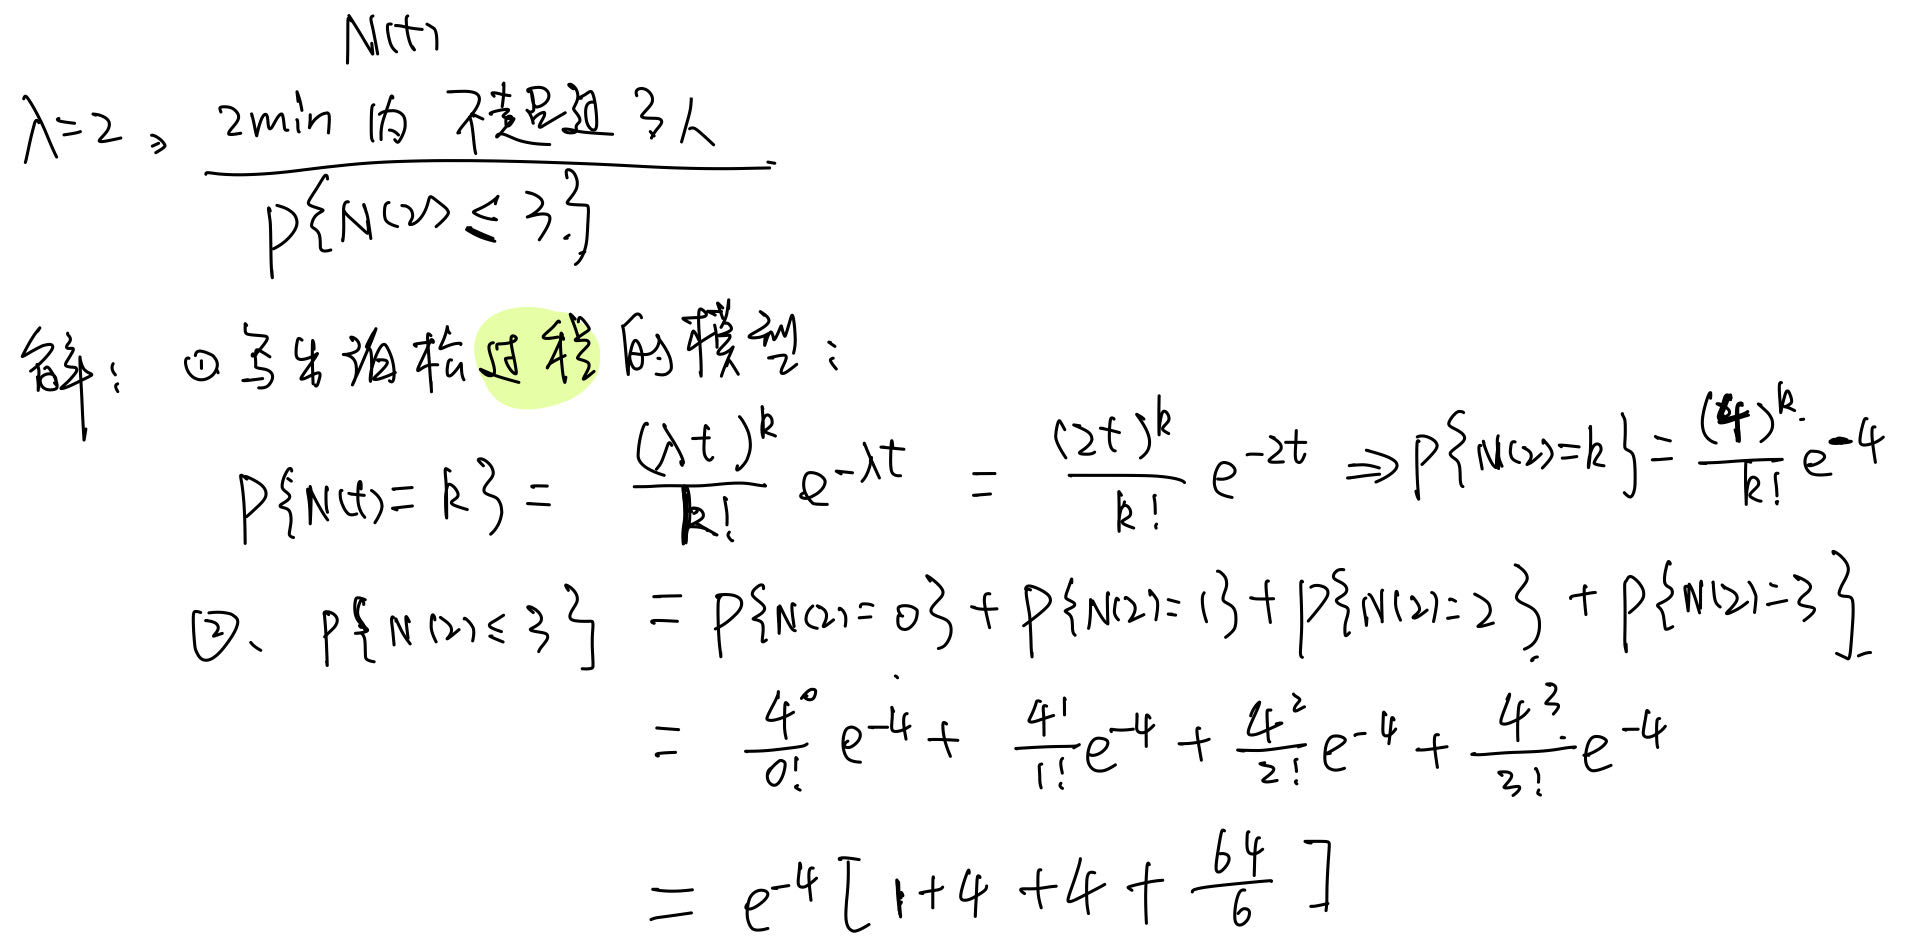 N(t)
λ=2, 2min内 不超过3人
P{N(2) ≤ 3}
解: ① 写出泊松过程的模型:
P{N(t)=k} = (λt)^k / k! e^{-λt} = (2t)^k / k! e^{-2t} ⇒ P{N(2)=k} = (4)^k / k! e^{-4}
②、 P{N(2)≤3} = P{N(2)=0} + P{N(2)=1} + P{N(2)=2} + P{N(2)=3}
= 4^0 / 0! e^{-4} + 4^1 / 1! e^{-4} + 4^2 / 2! e^{-4} + 4^3 / 3! e^{-4}
= e^{-4} [1+4+4+ 64/6]